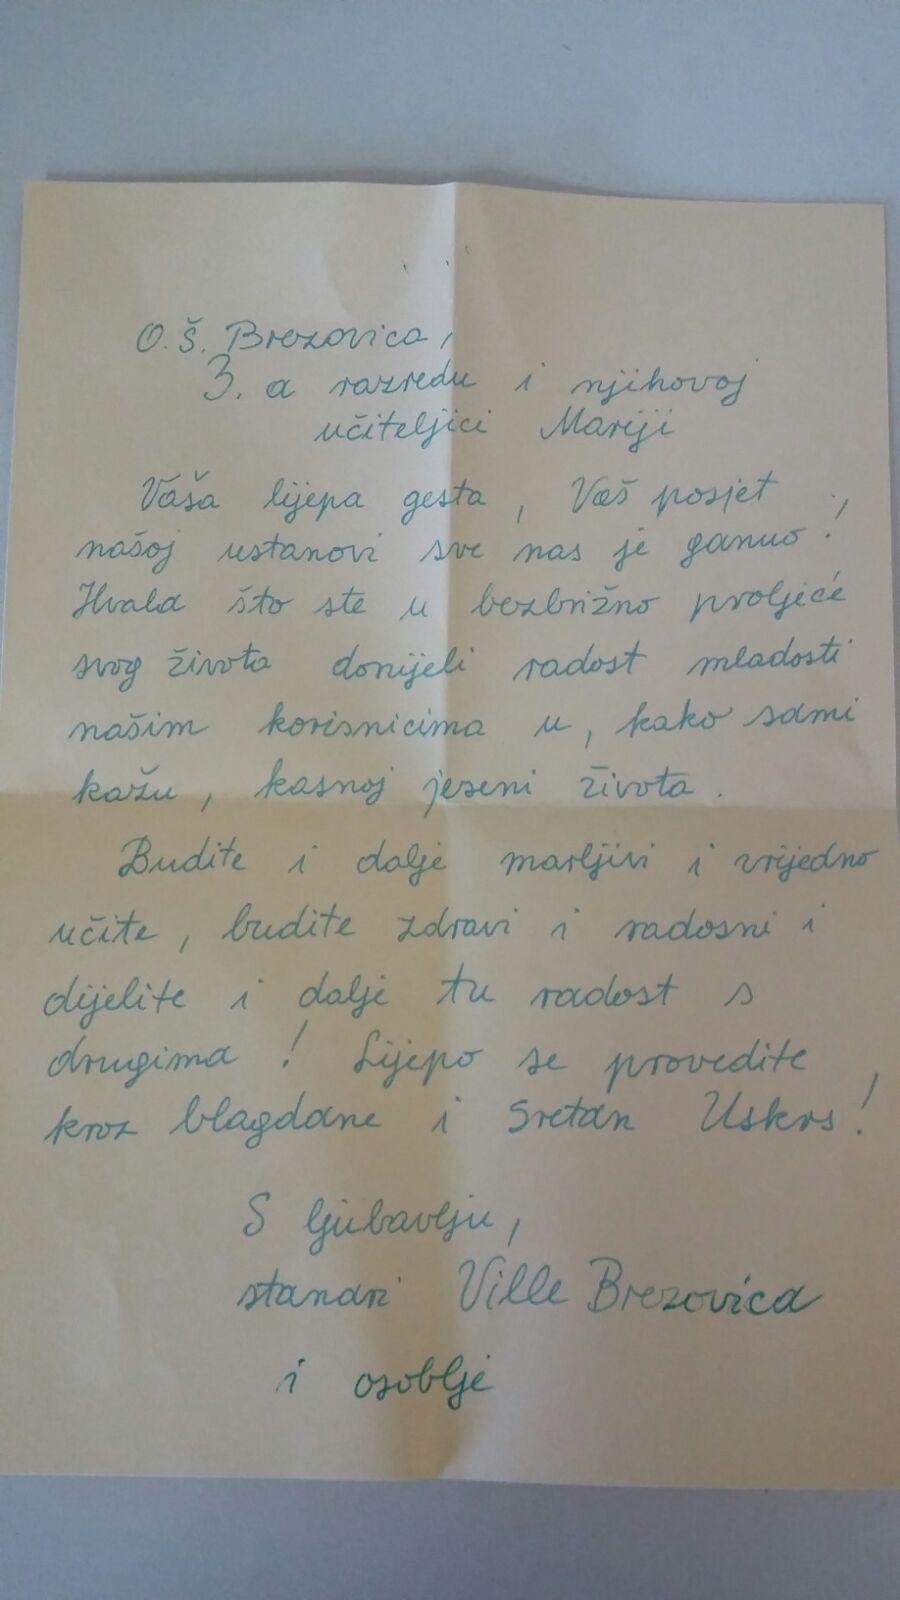 O.Š. Brezovica,
3. a razredu i njihovoj
učiteljici Mariji
Vaša lijepa gesta, Vaš posjet
našoj ustanovi sve nas je ganuo!
Hvala što ste u bezbrižno proljeće
svog života donijeli radost mladosti
našim korisnicima u, kako sami
kažu, kasnoj jeseni života.
Budite i dalje marljivi i vrijedno
učite, budite zdravi i radosni i
dijelite i dalje tu radost s
drugima! Lijepo se provedite
kroz blagdane i Sretan Uskrs!
S ljubavlju,
stanari Ville Brezovica
i osoblje